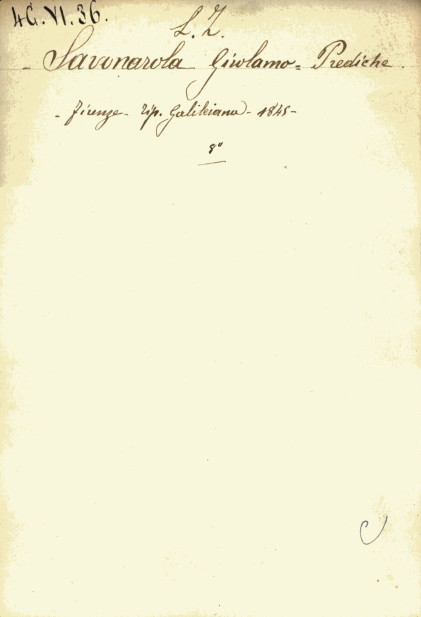 4G. VI. 36.
L. Z.
- Savonarola Girolamo = Prediche.
- Firenze - Tip. Galileiana - 1845 -
8°